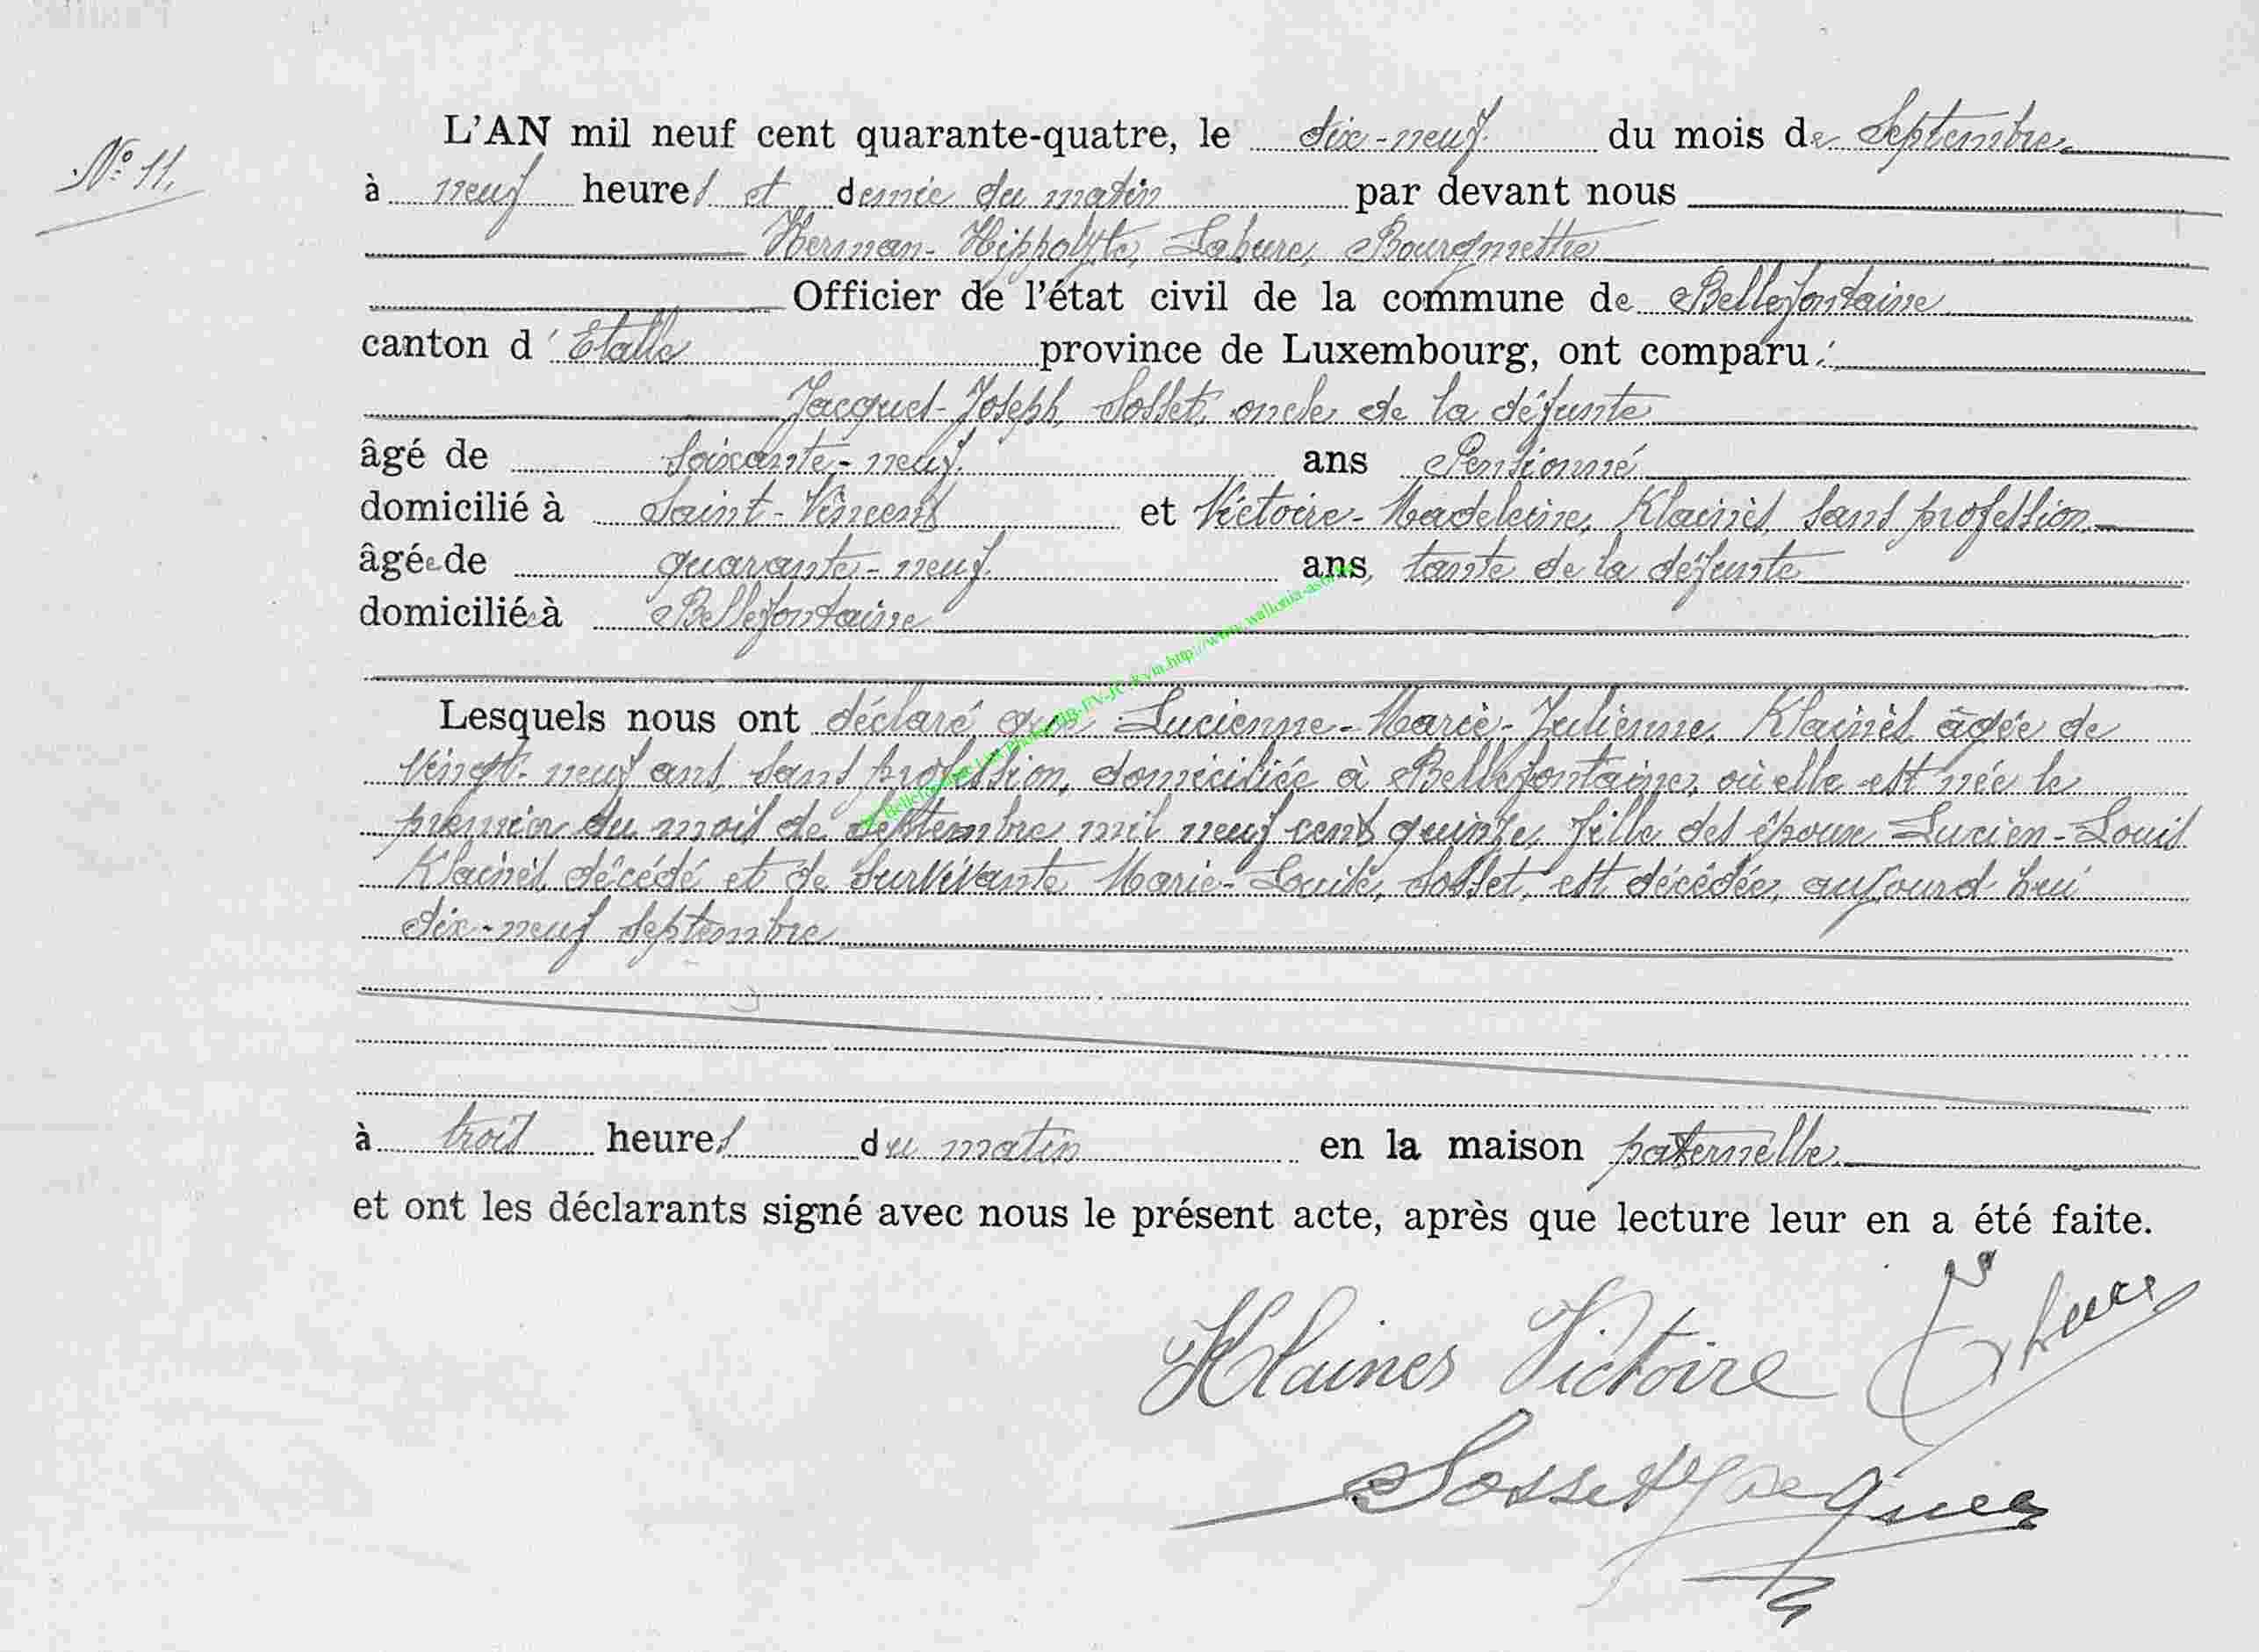 N° 11.
L'AN mil neuf cent quarante-quatre, le dix-neuf du mois de Septembre
à neuf heures et demie du matin par devant nous
Herman-Hippolyte, Lahure, Bourgmettre
Officier de l'état civil de la commune de Bellefontaine
canton d'Etalle province de Luxembourg, ont comparu :
Jacques-Joseph, Sosset, oncle de la défunte
âgé de soixante-neuf ans Pensionné
domicilié à Saint-Vincent et Victoire-Madeleine, Klainès, sans profession,
âgée de quarante-neuf ans, tante de la défunte
domiciliée à Bellefontaine
Lesquels nous ont déclaré que Lucienne-Marie-Julienne, Klainès âgée de
vingt-neuf ans, sans profession, domiciliée à Bellefontaine, où elle est née le
premier du mois de septembre mil neuf cent quinze, fille des époux Lucien-Louis
Klainès, décédé et de survivante Marie-Louise, Sosset, est décédée, aujourd'hui
dix-neuf septembre
à trois heures du matin en la maison paternelle
et ont les déclarants signé avec nous le présent acte, après que lecture leur en a été faite.
Klaines Victoire
Sosset Jacques